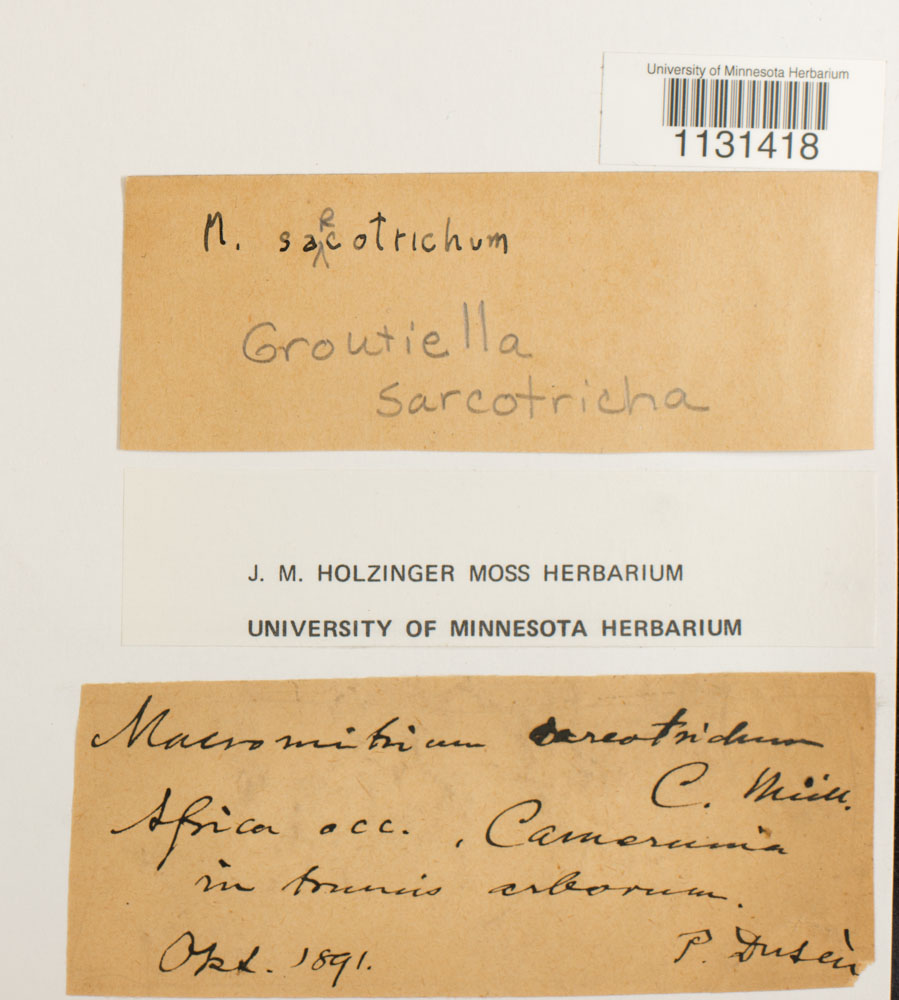 University of Minnesota Herbarium
1131418
M. sarcotrichum
Groutiella
sarcotricha
J. M. HOLZINGER MOSS HERBARIUM
UNIVERSITY OF MINNESOTA HERBARIUM
Macromitrium sarcotrichum
C. Müll.
Africa occ., Camerunia
in truncis arborum.
Okt. 1891.
P. Dusèn